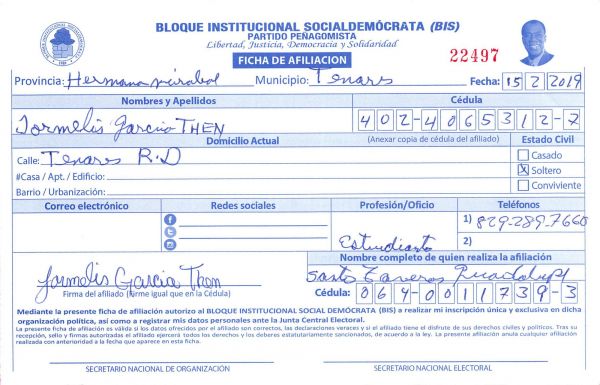 BLOQUE INSTITUCIONAL SOCIALDEMÓCRATA (BIS)
PARTIDO PEÑAGOMISTA
Libertad, Justicia, Democracia y Solidaridad
FICHA DE AFILIACION
22497
Provincia: Hermana mirabal Municipio: Tenares Fecha: 15 2 2019
Nombres y Apellidos Cédula
Jormelis Garcia THEN 402-4065312-7
Domicilio Actual (Anexar copia de cédula del afiliado) Estado Civil
Calle: Tenares R.D Casado
#Casa / Apt. / Edificio: X Soltero
Barrio / Urbanización: Conviviente
Correo electrónico Redes sociales Profesión/Oficio Teléfonos
1) 829-289-7660
Estudiante 2)
Nombre completo de quien realiza la afiliación
Jormelis Garcia Then Santo Taveras
Firma del afiliado (Firme igual que en la Cédula) Cédula: 064-0011739-3
Mediante la presente ficha de afiliación autorizo al BLOQUE INSTITUCIONAL SOCIAL DEMÓCRATA (BIS) a realizar mi inscripción única y exclusiva en dicha
organización política, así como a registrar mis datos personales ante la Junta Central Electoral.
La presente ficha de afiliación es válida si los datos ofrecidos por el afiliado son correctos, las declaraciones veraces y si el afiliado tiene el disfrute de sus derechos civiles y políticos. Tras su
recepción, sello y firmas autorizadas el afiliado ejercerá todos los derechos y los deberes estatutariamente sancionados, de acuerdo a la ley. La presente afiliación anula cualquier afiliación
realizada con anterioridad a la fecha que aparece en esta ficha.
SECRETARIO NACIONAL DE ORGANIZACIÓN SECRETARIO NACIONAL ELECTORAL